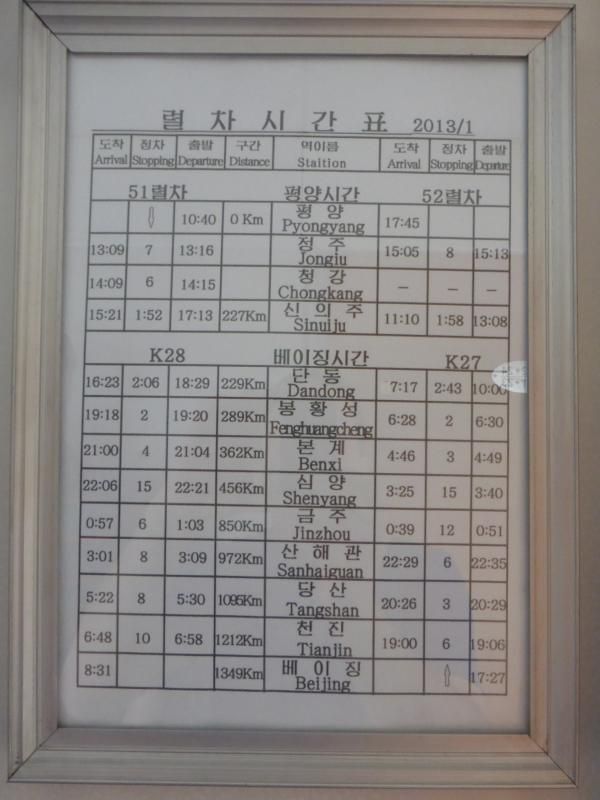 렬 차 시 간 표 2013/1
도착 정차 출발 구간 역이름 도착 정차 출발
Arrival Stopping Departure Distance Staition Arrival Stopping Departure
51렬차 평양시간 52렬차
평 양
10:40 0 Km Pyongyang 17:45
정 주
13:09 7 13:16 Jongju 15:05 8 15:13
청 강
14:09 6 14:15 Chongkang – – –
신 의 주
15:21 1:52 17:13 227Km Sinuiju 11:10 1:58 13:08
K28 베이징시간 K27
단 동
16:23 2:06 18:29 229Km Dandong 7:17 2:43 10:00
봉 황 성
19:18 2 19:20 289Km Fenghuangcheng 6:28 2 6:30
본 계
21:00 4 21:04 362Km Benxi 4:46 3 4:49
심 양
22:06 15 22:21 456Km Shenyang 3:25 15 3:40
금 주
0:57 6 1:03 850Km Jinzhou 0:39 12 0:51
산 해 관
3:01 8 3:09 972Km Sanhaiguan 22:29 6 22:35
당 산
5:22 8 5:30 1095Km Tangshan 20:26 3 20:29
천 진
6:48 10 6:58 1212Km Tianjin 19:00 6 19:06
베 이 징
8:31 1349Km Beijing 17:27